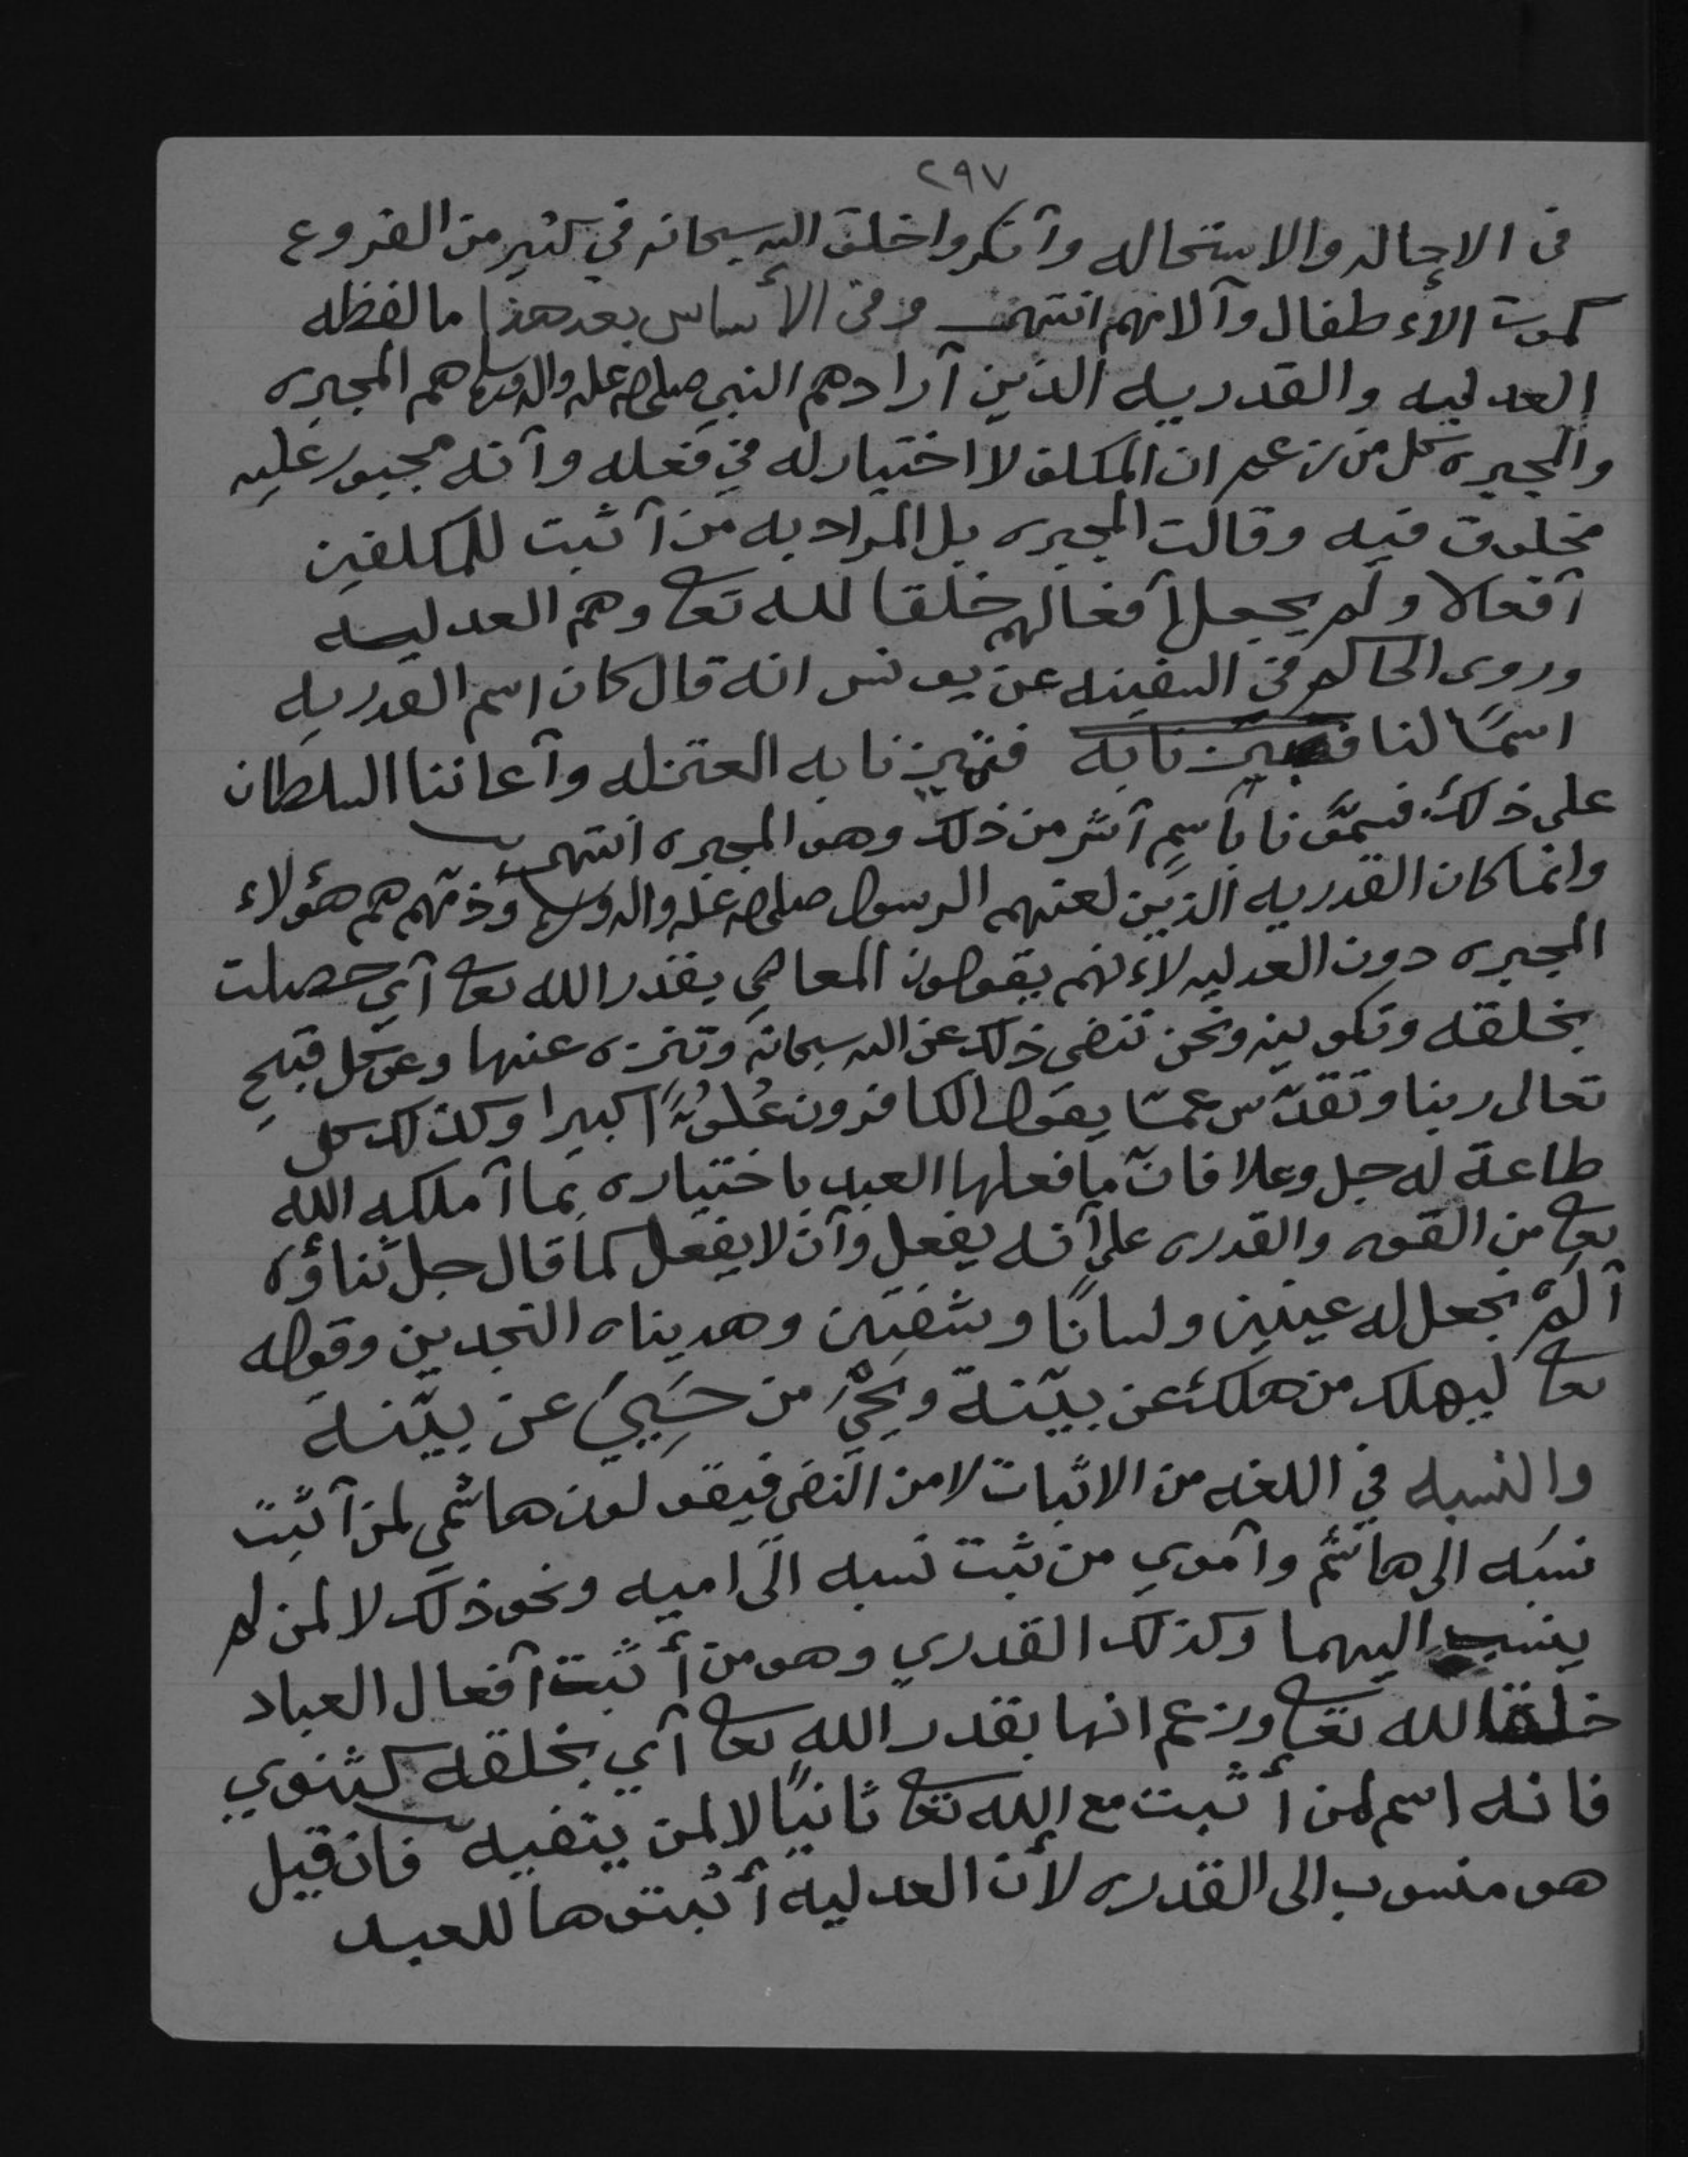 ٢٩٧
في الاحاله والاستحاله وأنكروا خلق الله سبحانه في كثير من الفروع
كموت الأطفال وآلامهم انتهى وفي الأساس بعد هذا ما لفظه
العدليه والقدريه الذين أرادهم النبي صلى الله عليه واله وسلم هم المجبره
والمجبره كل من زعم ان المكلف لا اختيار له في فعله وأنه مجبور عليه
مخلوق فيه وقالت المجبره بل المراد به من أثبت للمكلفين
أفعالا ولم يجعل أفعالهم خلقا لله تعا وهم العدليه
وروى الحاكم في السفينه عن يونس انه قال كان اسم القدريه
اسمًا لنا فنبزنا به المعتزله وأعاننا السلطان
على ذلك فسمَّونا بأسمٍ أشر من ذلك وهو المجبره انتهى
وانما كان القدريه الذين لعنهم الرسول صلى الله عليه واله وسلم وذمّهم هم هؤلاء
المجبره دون العدليه لأنهم يقولون المعاصي بقدر الله تعا أي حصلت
بخلقه وتكوينه ونحن ننفي ذلك عن الله سبحانه وننزه عنها وعن كل قبيحٍ
تعالى ربنا وتقدّس عمّا يقول الكافرون عُلوًّا كبيرا وكذلك كل
طاعة له جل وعلا فانّما فعلها العبد باختياره بما أملكه الله
تعا من القوه والقدره على أنه يفعل وأن لا يفعل كما قال جل ثناؤه
ألمْ نجعل له عينين ولسانًا وشفتين وهديناه النجدين وقوله
تعا ليهلك من هلك عن بيّنة ويحيْ من حَيِيَ عن بيّنة
والنسبه في اللغه من الاثبات لا من النفي فيقولون هاشمي لمن أثبت
نسبه الى هاشم وأموي من ثبت نسبه الى اميه ونحو ذلك لا لمن لم
ينسب اليهما وكذلك القدري وهو من أثبت أفعال العباد
خلقا لله تعا وزعم انها بقدر الله تعا أي بخلقه كثنوي
فانه اسم لمن أثبت مع الله تعا ثانيًا لا لمن ينفيه فان قيل
هو منسوب الى القدره لأن العدليه أثبتوها للعبد